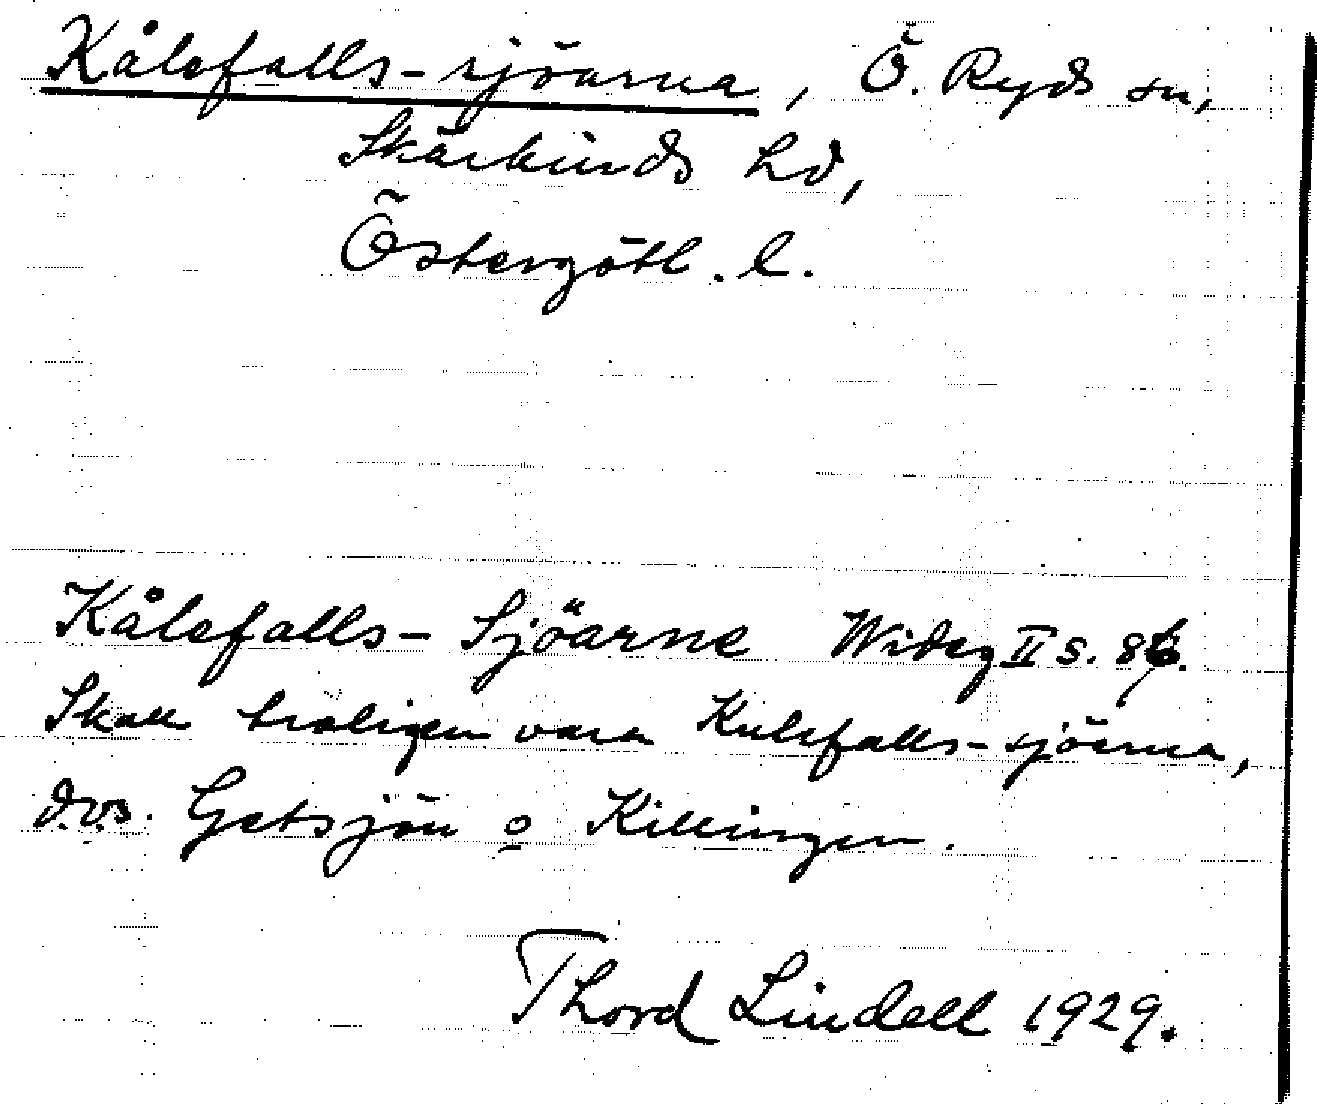 Kålefalls-sjöarna, Ö. Ryds sn,
Skärkinds hd,
Östergötl. l.
Kålefalls-Sjöarne Wideg II s. 86.
Skall troligen vara Kulefalls-sjöarna,
d.v.s. Getsjön o Killingen.
Thord Lindell 1929.